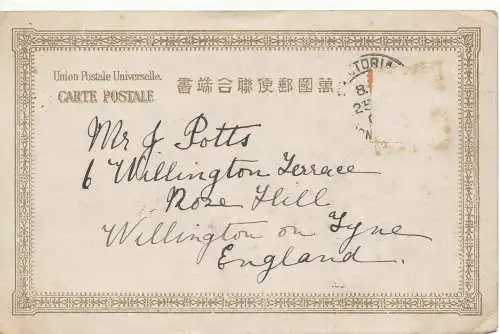 Union Postale Universelle.
CARTE POSTALE
書端合聯便郵國萬
VICTORIA
8
25
Mr J Potts
6 Willington Terrace
Rose Hill
Willington on Tyne
England.